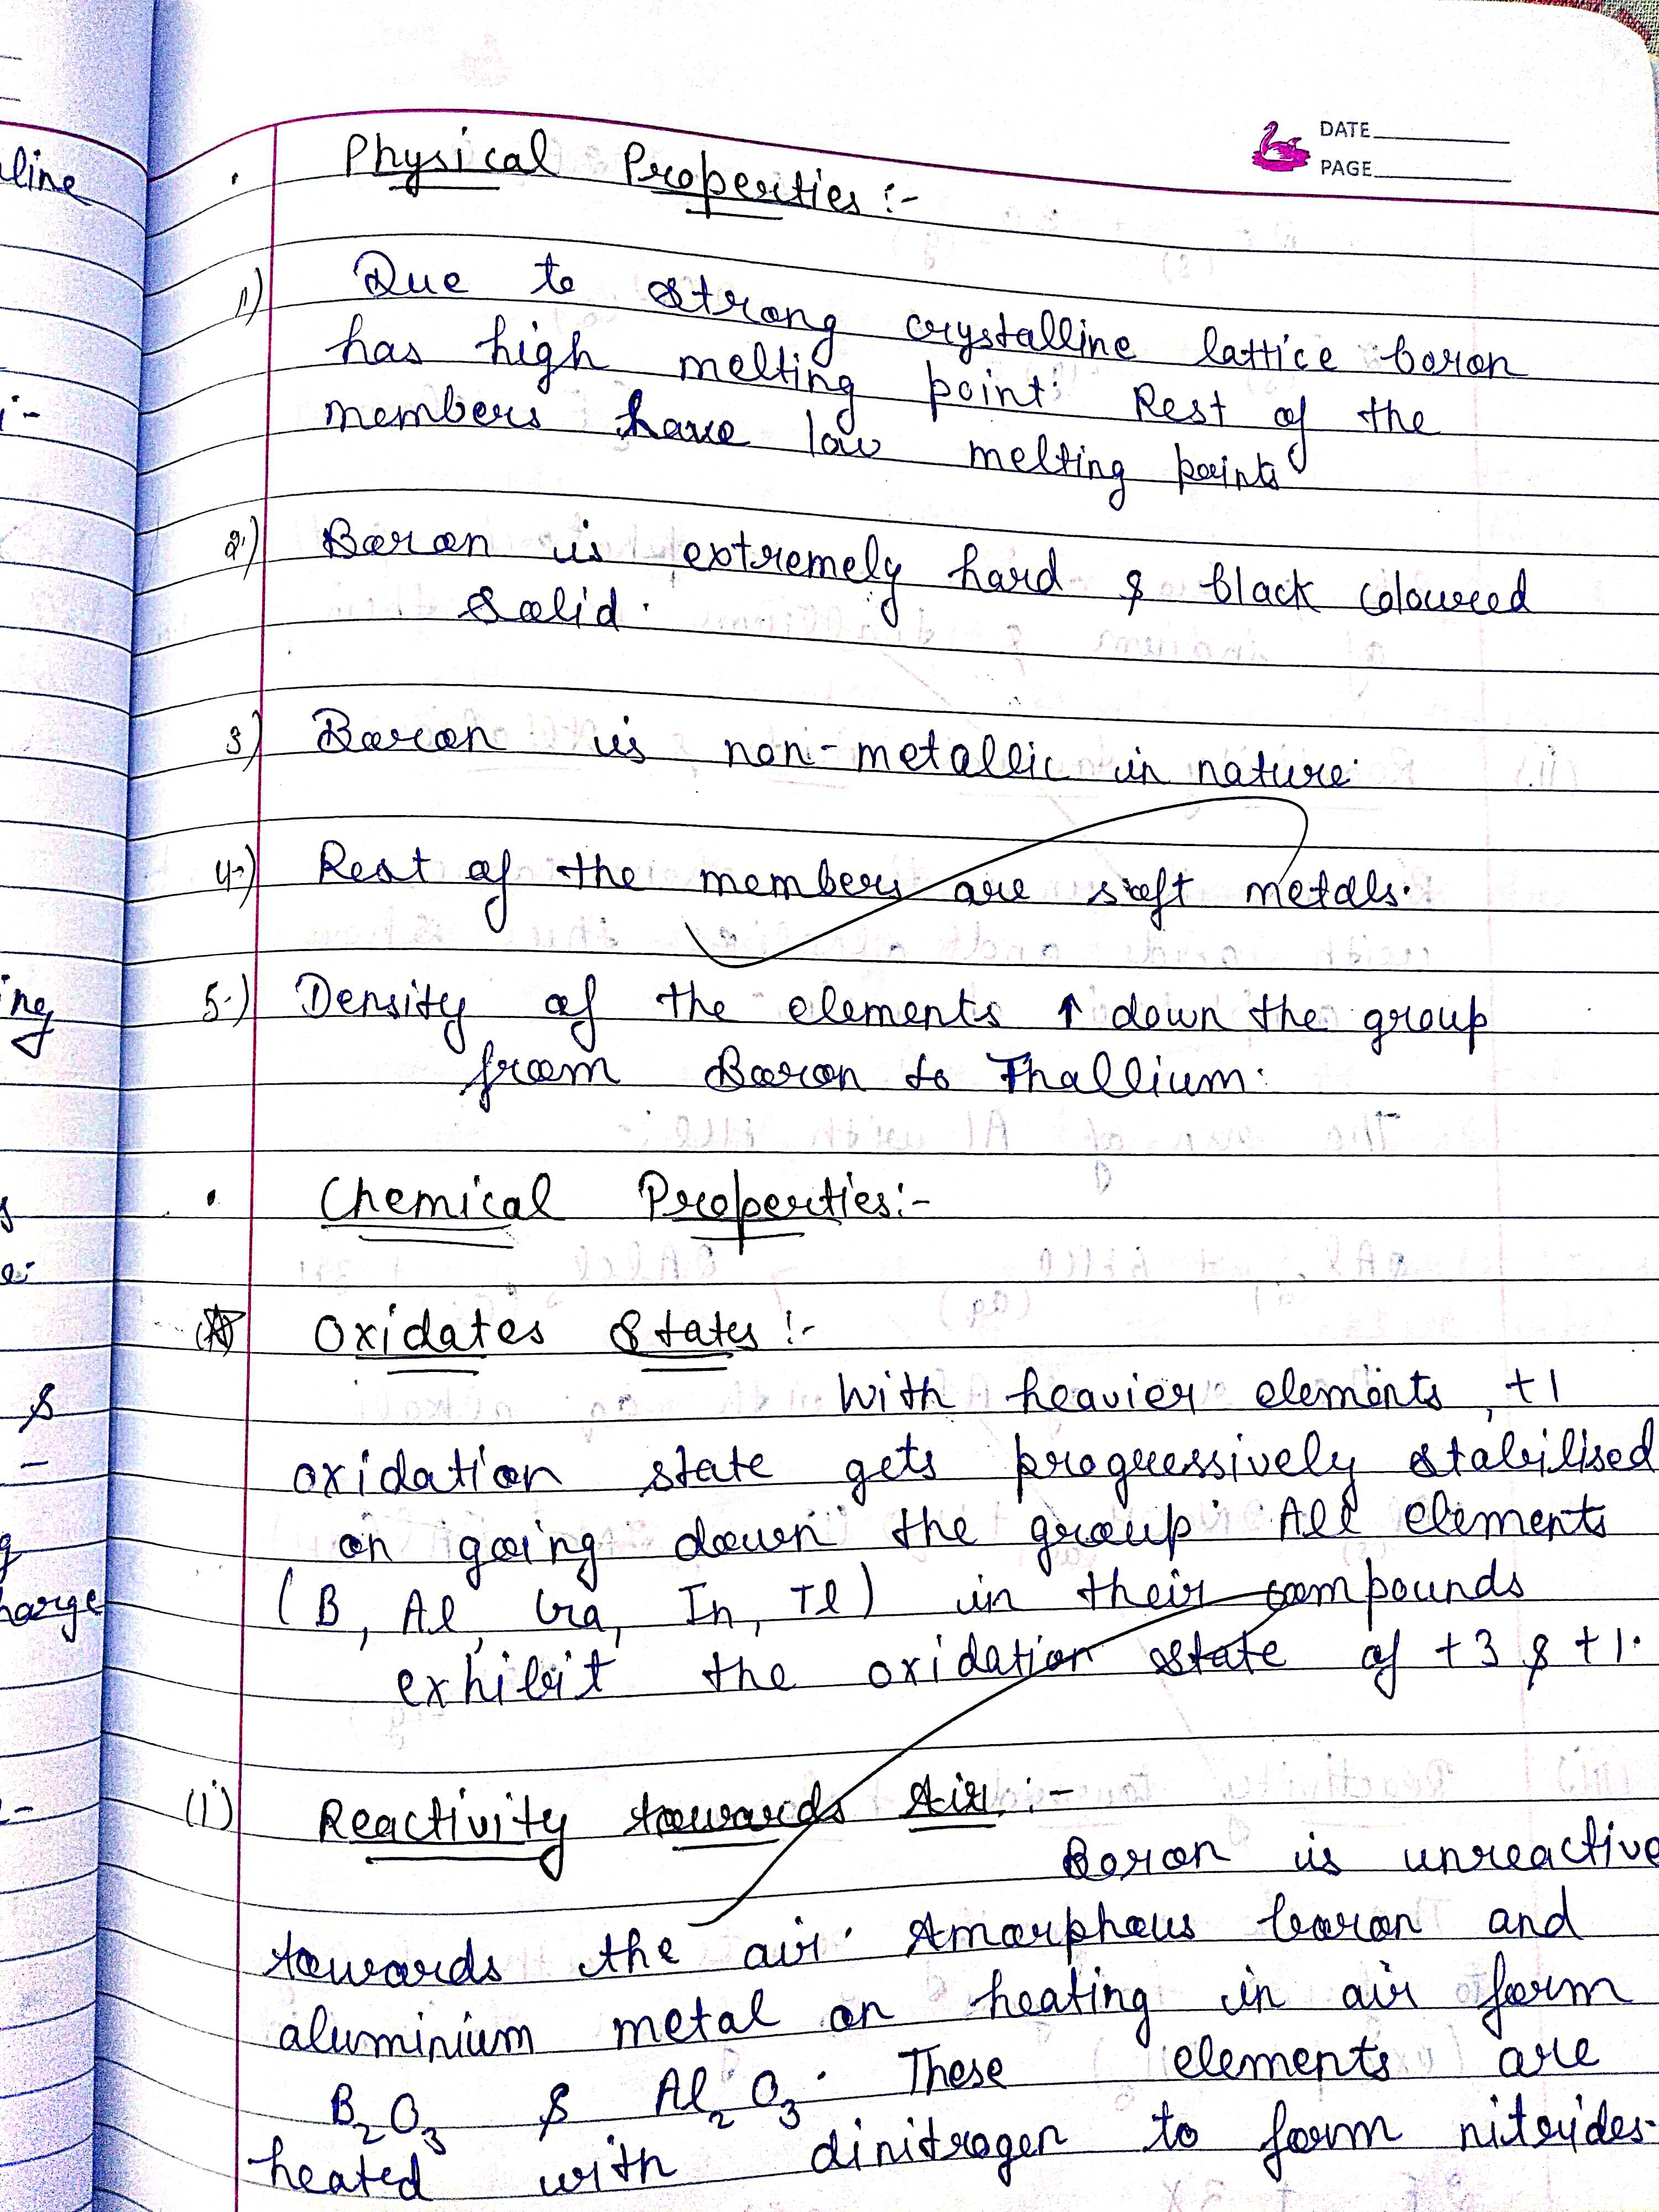 DATE
PAGE
Physical Properties :-
1) Due to strong crystalline lattice boron
has high melting point. Rest of the
members have low melting points
2.) Boron is extremely hard & black coloured
solid.
3) Boron is non-metallic in nature.
4.) Rest of the members are soft metals.
5.) Density of the elements ↑ down the group
from Boron to Thallium.
• Chemical Properties:-
Oxidates States :-
With heavier elements, +1
oxidation state gets progressively stabilised
on going down the group. All elements
(B, Al, Ga, In, Tl) in their compounds
exhibit the oxidation state of +3 & +1.
(i) Reactivity towards Air :-
Boron is unreactive
towards the air. Amorphous boron and
aluminium metal on heating in air form
B₂O₃ & Al₂O₃. These elements are
heated with dinitrogen to form nitrides.
line
:-
ing
&
-
harge